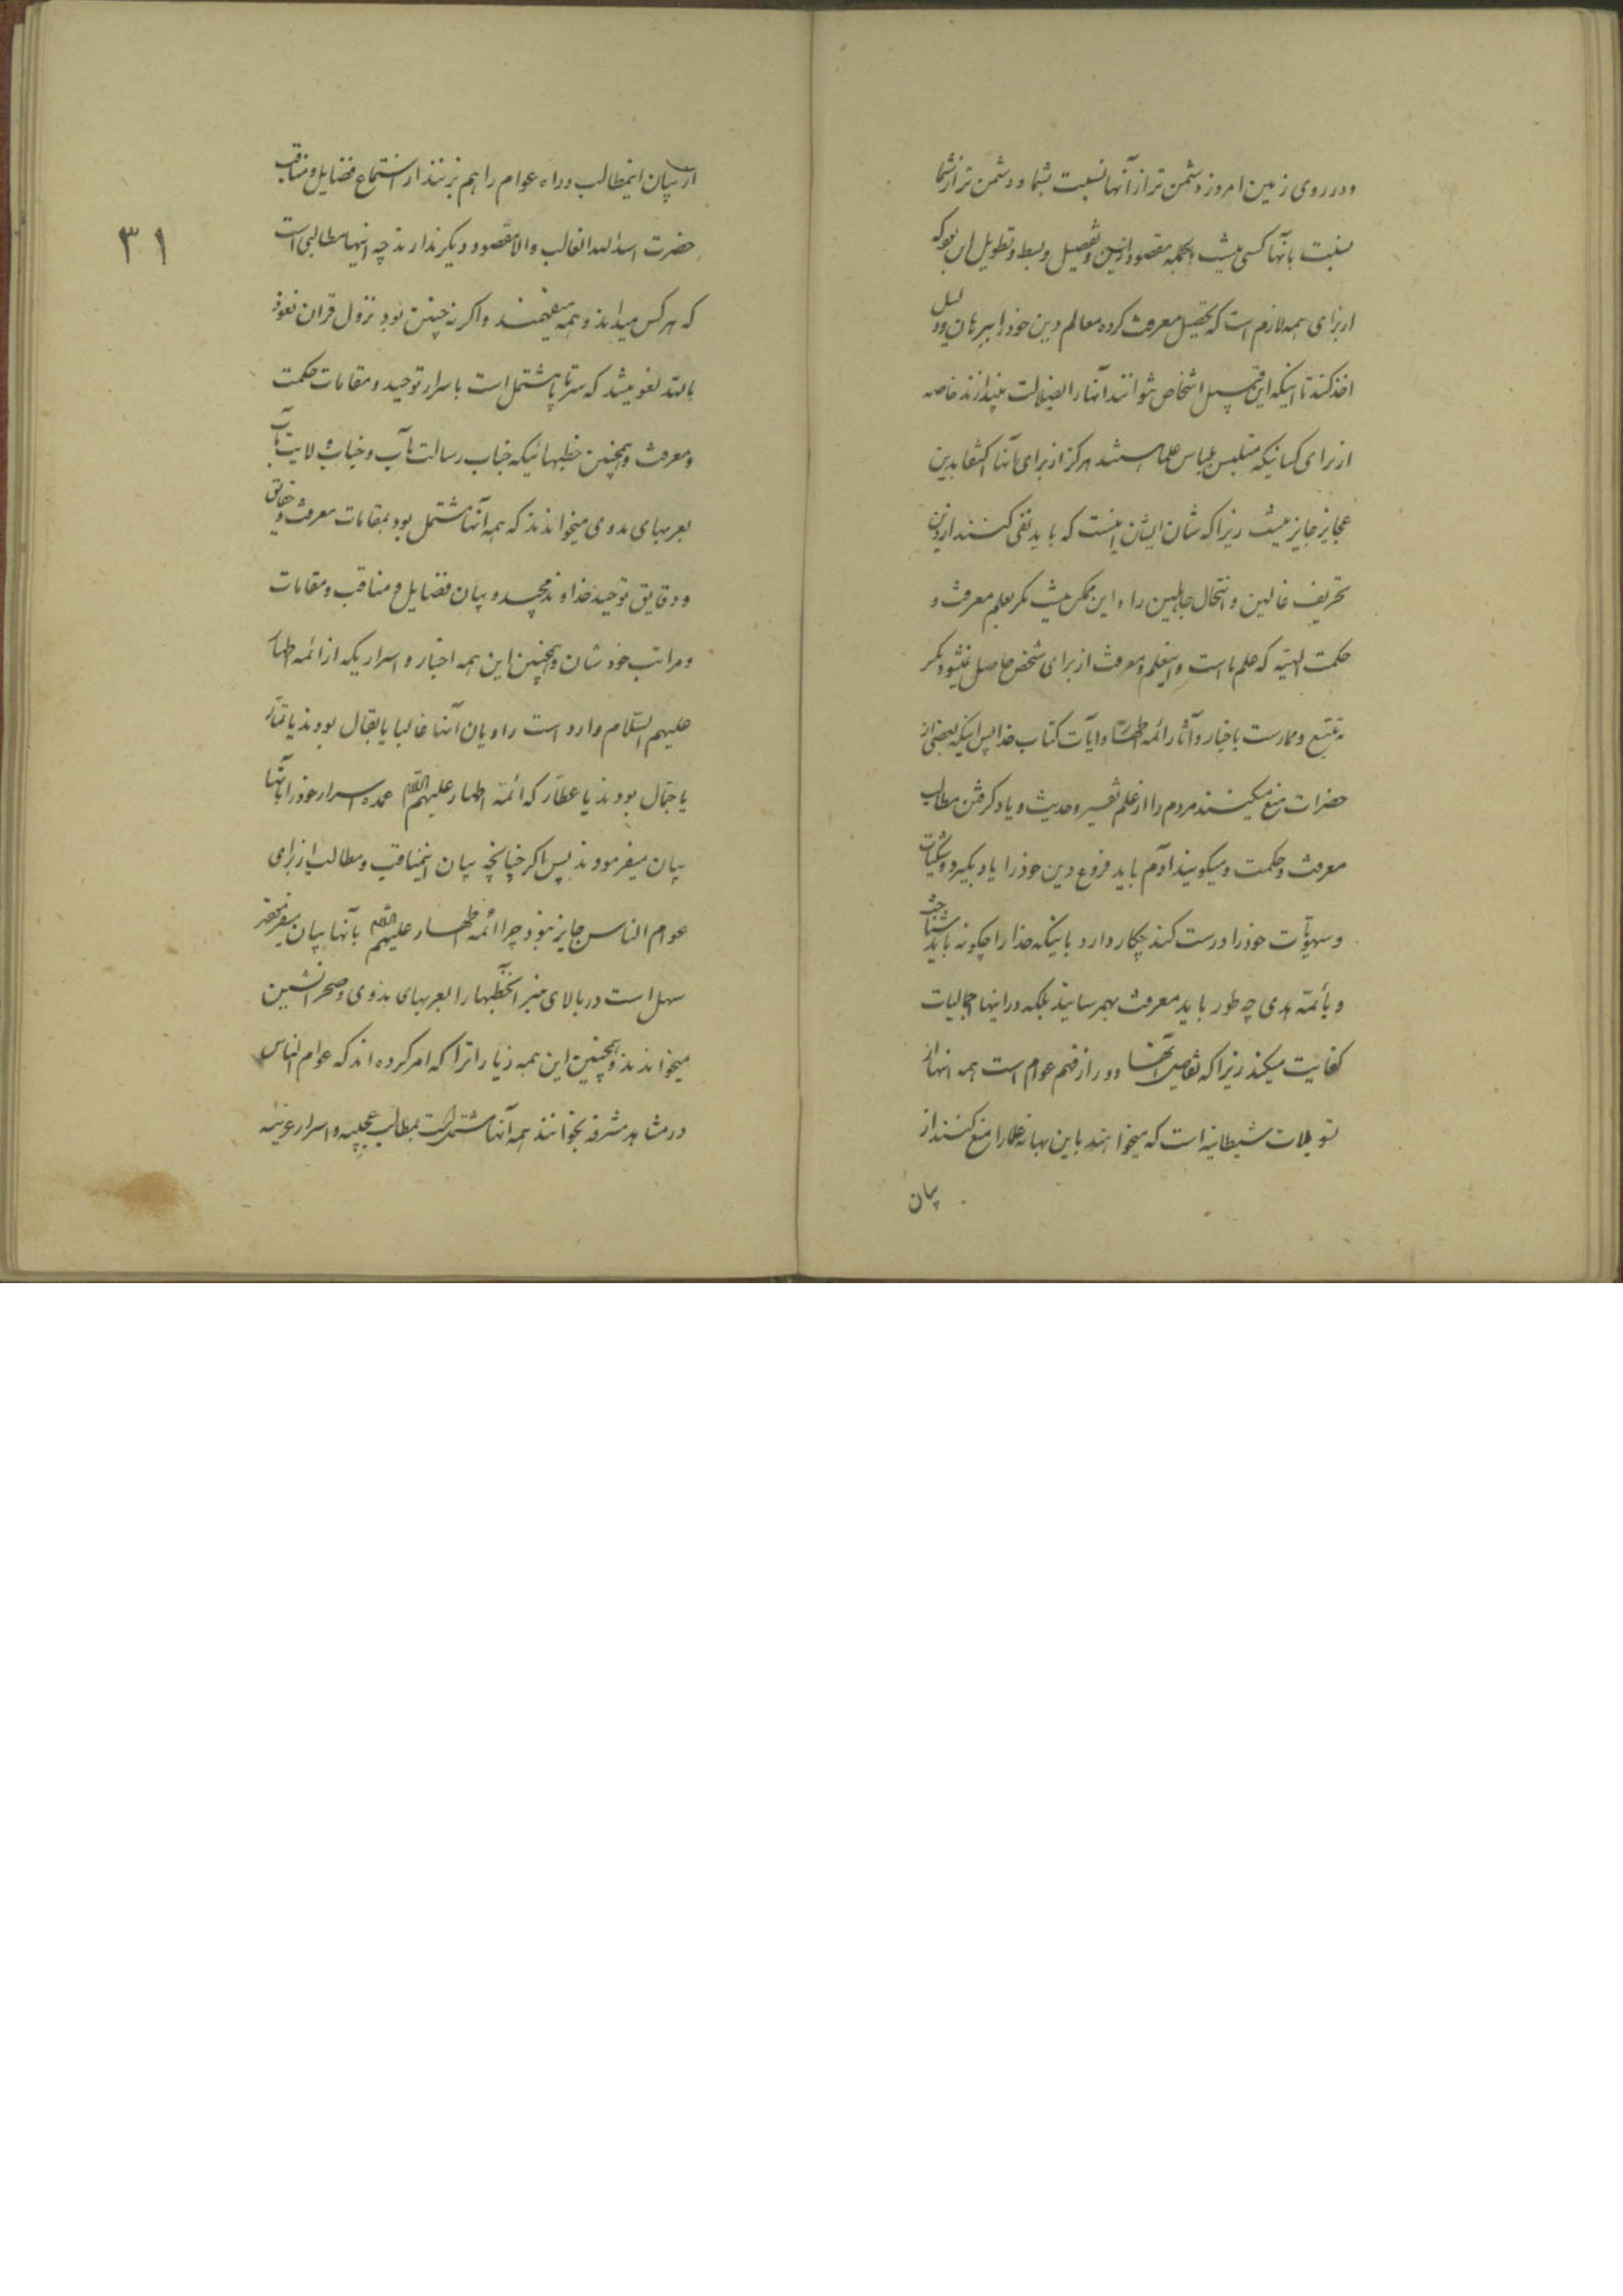 و در روی زمین امروز دشمن تر از آنها نسبت بشما و دشمن تر از شما
نسبت بآنها کسی نیست الحاصل مقصود ازین تفصیل و بسط و تطویل این بود که
از برای همه لازم است که تحصیل معرفت کرده معالم دین خود را ببرهان و دلیل
اخذ کنند تا اینکه این قبیل اشخاص نتوانند آنها را بضلالت بیندازند خاصه
از برای کسانیکه متلبس بلباس علما هستند هرگز از برای آنها اکتفا بدین
عجایز جایز نیست زیرا که شان ایشان اینست که باید نفی کنند از دین
تحریف غالین و انتحال جاهلین را و این ممکن نیست مگر بعلم معرفت و
حکمت الهیّه که علم ما است و اینعلم و معرفت از برای شخص حاصل نمیشود مگر
به تتبع و ممارست باخبار و آثار ائمه اطهار و آیات کتاب خدا پس اینکه بعضی از
حضرات منع میکنند مردم را از علم تفسیر و حدیث و یاد گرفتن مطالب
معرفت و حکمت و میگویند آدم باید فروع دین خود را یاد بگیرد و شکیات
و سهویّات خود را درست کند چکار دارد باینکه خدا را چگونه باید شناخت
و بأئمّه هدی چه طور باید معرفت بهمرسانید بلکه در اینها اجمالیات
کفایت میکند زیرا که تفاصیل آنها دور از فهم عوام است همه اینها از
تسویلات شیطانیه است که میخواهند باین بهانه علما را منع کنند از
بیان
از بیان اینمطالب و راه عوام را هم بزنند از استماع فضایل و مناقب
۳۱
حضرت اسد الله الغالب و الا مقصود دیگر ندارند چه اینها مطالبی است
که هر کس میداند و همه میفهمند و اگر نه چنین بود نزول قران نعوذ
بالله لغو میشد که سر تا پا مشتمل است باسرار توحید و مقامات حکمت
و معرفت و همچنین خطبهائیکه جناب رسالت مآب و جناب ولایت مآب
بعربهای بدوی میخواندند که همه آنها مشتمل بود بمقامات معرفت و حقایق
و دقایق توحید خداوند مجید و بیان فضایل و مناقب و مقامات
و مراتب خودشان و همچنین این همه اخبار و اسراریکه از ائمه اطهار
علیهم السّلام وارد است راویان آنها غالبا یا بقال بودند یا تمّار
یا جمّال بودند یا عطّار که ائمّه اطهار علیهم السّلام عمده اسرار خود را بآنها
بیان میفرمودند پس اگر چنانچه بیان اینمناقب و مطالب از برای
عوام الناس جایز نبود چرا ائمه اطهار علیهم السّلام بآنها بیان میفرمودند
سهل است در بالای منبر آنخطبها را بعربهای بدوی و صحرا نشین
میخواندند و همچنین این همه زیاراترا که امر کرده اند که عوام الناس
در مشاهد مشرفه بخوانند همه آنها مشتمل است بمطالب عجیبه و اسرار غریبه